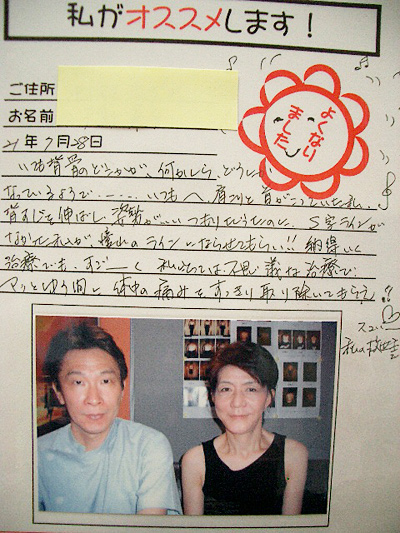 私がオススメします!
ご住所
お名前
よくなり
ました
21年7月28日
いつも背骨のどこかが、何かしら、どうにか
なっているようで‥‥‥いつも肩こりと首がこっていた私
背すじを伸ばし姿勢がいいつもりだったのに、S字ラインが
なかった私が、憧れのラインにならせてもらい!!納得いく
治療でも、すご〜く私にとっては不思議な治療で
アッとゆう間に体中の痛みをすっきり取り除いてもらえ
スゴい
私の